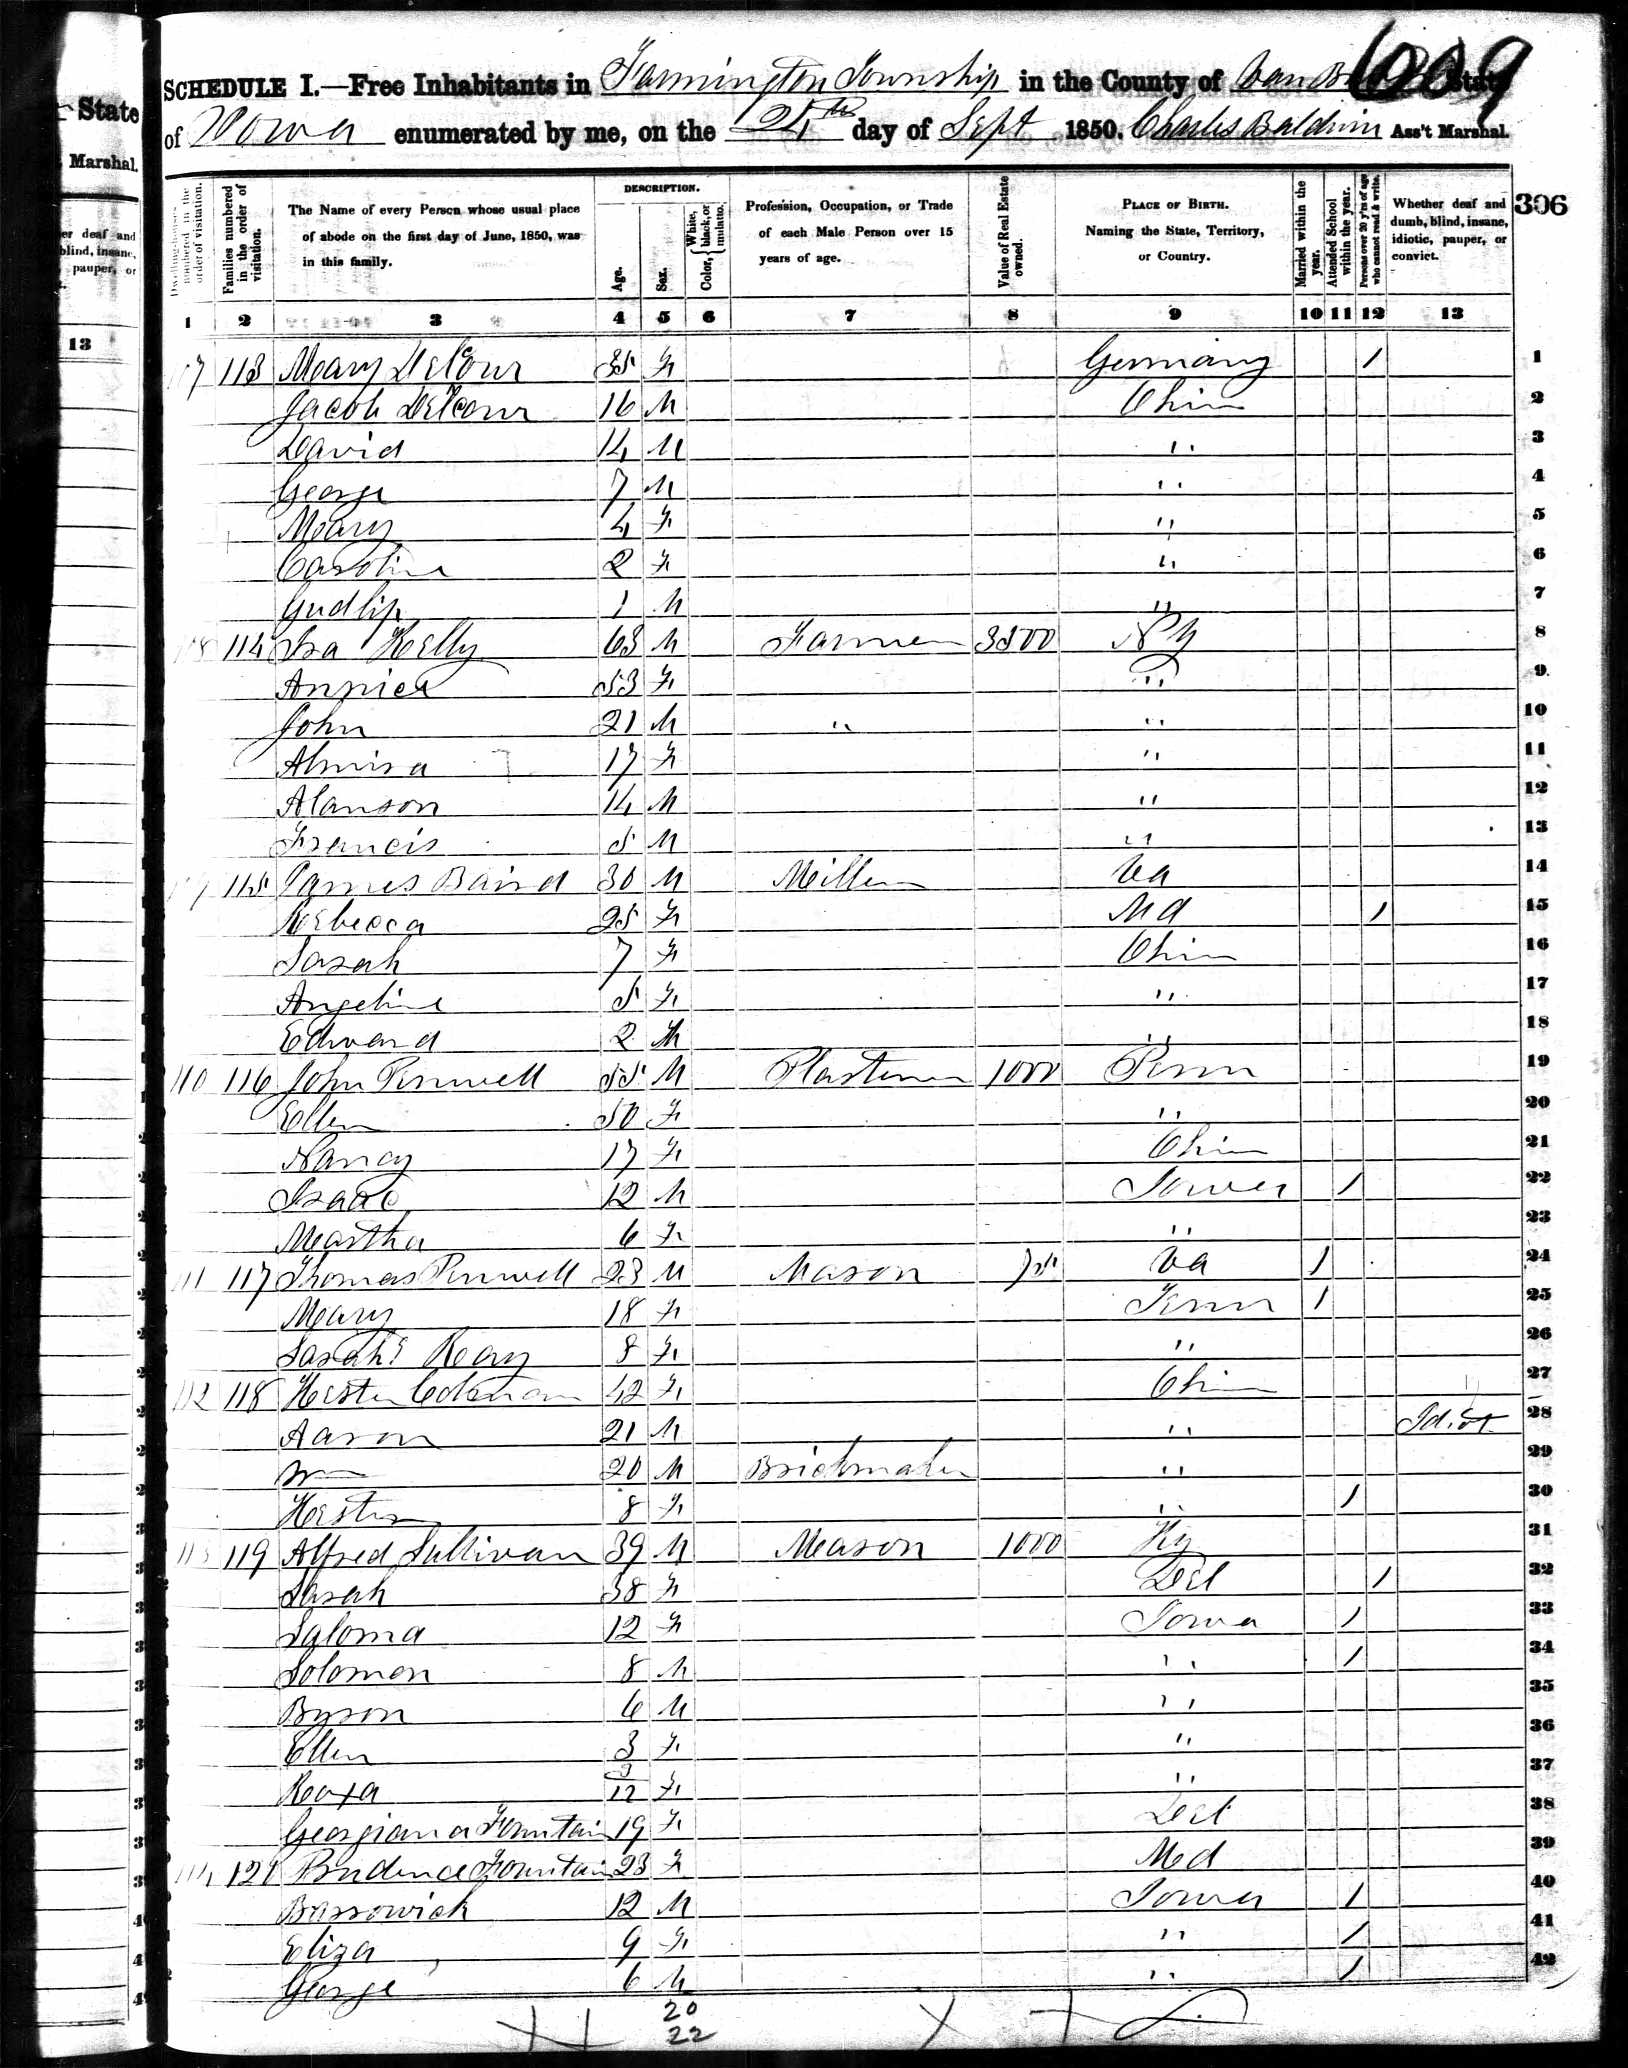 609
SCHEDULE I.—Free Inhabitants in Farmington Township in the County of Van State
of Iowa enumerated by me, on the day of Sept 1850. Charles Baldwin Ass't Marshal.
306
Dwelling-houses numbered in the order of visitation.
Families numbered in the order of visitation.
The Name of every Person whose usual place of abode on the first day of June, 1850, was in this family.
DESCRIPTION.
Age.
Sex.
Color, { White, black, or mulatto.
Profession, Occupation, or Trade of each Male Person over 15 years of age.
Value of Real Estate owned.
PLACE OF BIRTH. Naming the State, Territory, or Country.
Married within the year.
Attended School within the year.
Persons over 20 y'rs of age who cannot read & write.
Whether deaf and dumb, blind, insane, idiotic, pauper, or convict.
1 2 3 4 5 6 7 8 9 10 11 12 13
107 113 Mary 35 F Germany 1 1
Jacob 16 M Ohio 2
David 14 M " 3
George 7 M " 4
Mary 4 F " 5
Caroline 2 F " 6
Gudlip 1 M " 7
108 114 Ira Kelly 63 M Farmer 3500 N Y 8
53 F " 9
John 21 M " " 10
Almira 17 F " 11
Alanson 14 M " 12
Francis 5 M " 13
109 115 James Baird 30 M Miller Va 14
Rebecca 25 F Md 1 15
Sarah 7 F Ohio 16
Angeline 5 F " 17
Edward 2 M " 18
110 116 John Penwell 55 M Plasterer 1000 Penn 19
Ellen 50 F " 20
Nancy 17 F Ohio 21
Isaac 12 M Iowa 1 22
Martha 6 F " 23
111 117 Thomas Penwell 23 M Mason 75 Va 1 24
Mary 18 F 1 25
Sarah E Ray 8 F " 26
112 118 Hester Coleman 42 F Ohio 27
Aaron 21 M " Idiot 28
Wm 20 M Brickmaker " 29
Hester 8 F " 1 30
113 119 Alfred Sullivan 39 M Mason 1000 Ky 31
Sarah 38 F Del 1 32
Saloma 12 F Iowa 1 33
Solomon 8 M " 1 34
Byron 6 M " 35
Ellen 3 F " 36
Roxa 3/12 F " 37
Georgiana Fountain 19 F Del 38
114 120 Prudence Fountain 23 F Md 39
12 M Iowa 1 40
Eliza 9 F " 1 41
George 6 M " 1 42
20
22
State
Marshal.
13